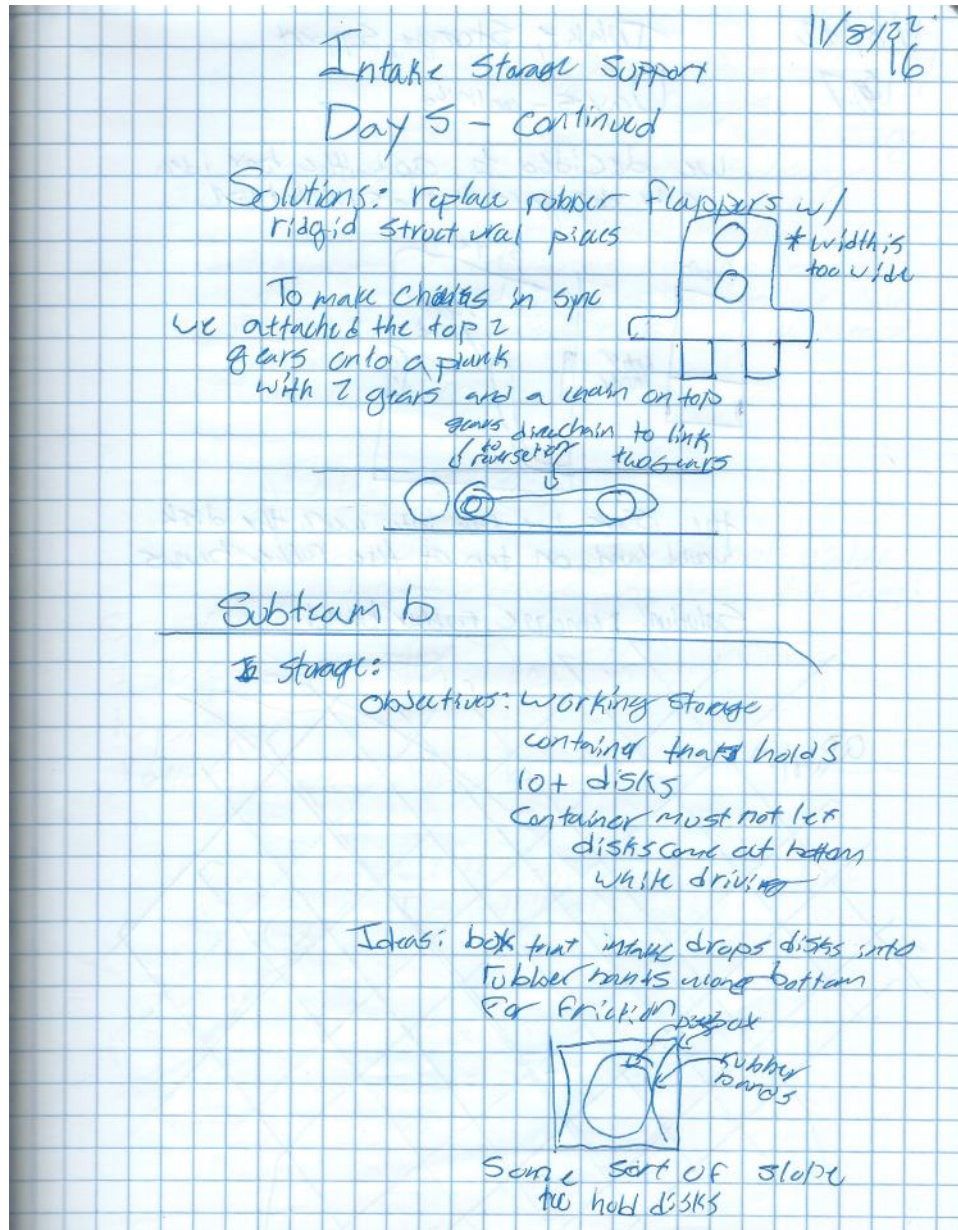 11/8/22
16
Intake Storage Support
Day 5 - continued
Solutions: replace rubber flappers w/
ridgid structural pieces
* width is
too wide
To make chains in sync
we attached the top 2
gears onto a plank
with 2 gears and a chain on top
gears chain to link
to reverse two gears
Subteam b
Storage:
Objectives: Working storage
container that holds
10+ disks
Container must not let
disks come out bottom
while driving
Ideas: box that intake drops disks into
rubber bands along bottom
For friction
box
rubber
bands
Some sort of slope
to hold disks